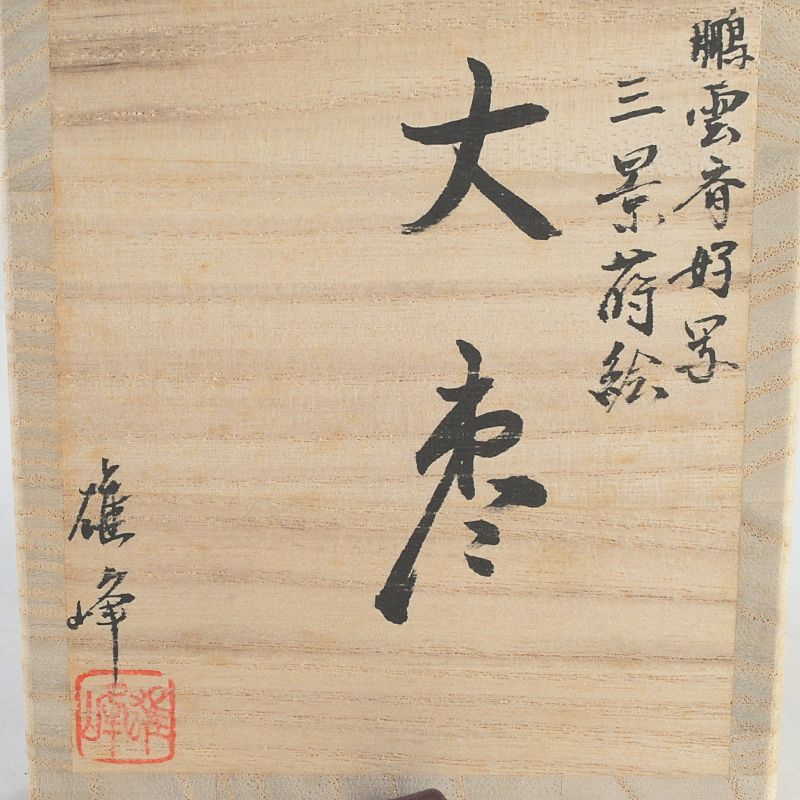 鵬雲斎好写
三景蒔絵
大棗
雄峰
雄峰